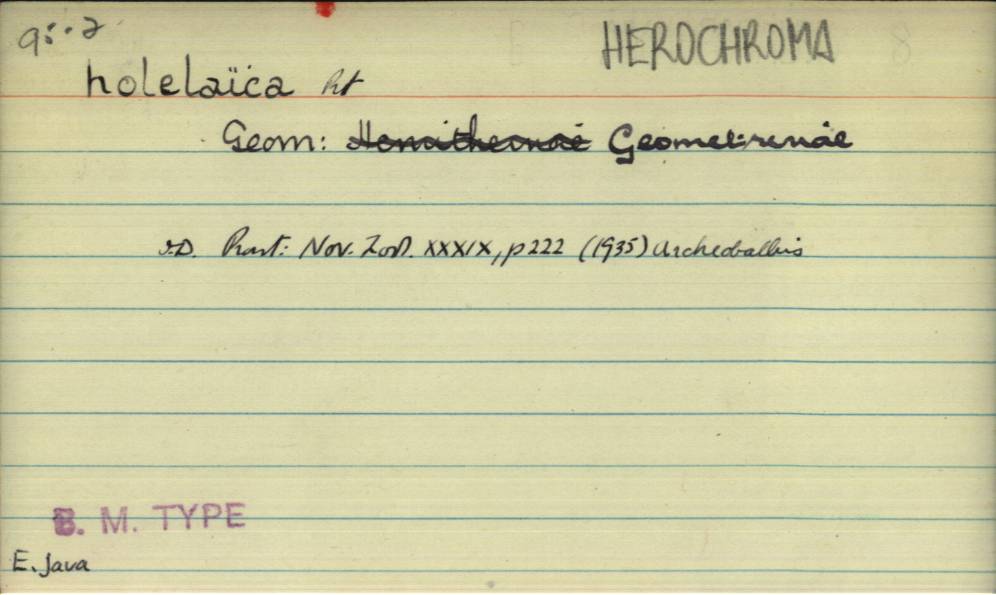 HEROCHROMA
holelaïca Prt
Geom: Hemitheinae Geometrinae
O.D. Prout: Nov. Zool. XXXIX, p222 (1935) Archeobalbis
B. M. TYPE
E. Java